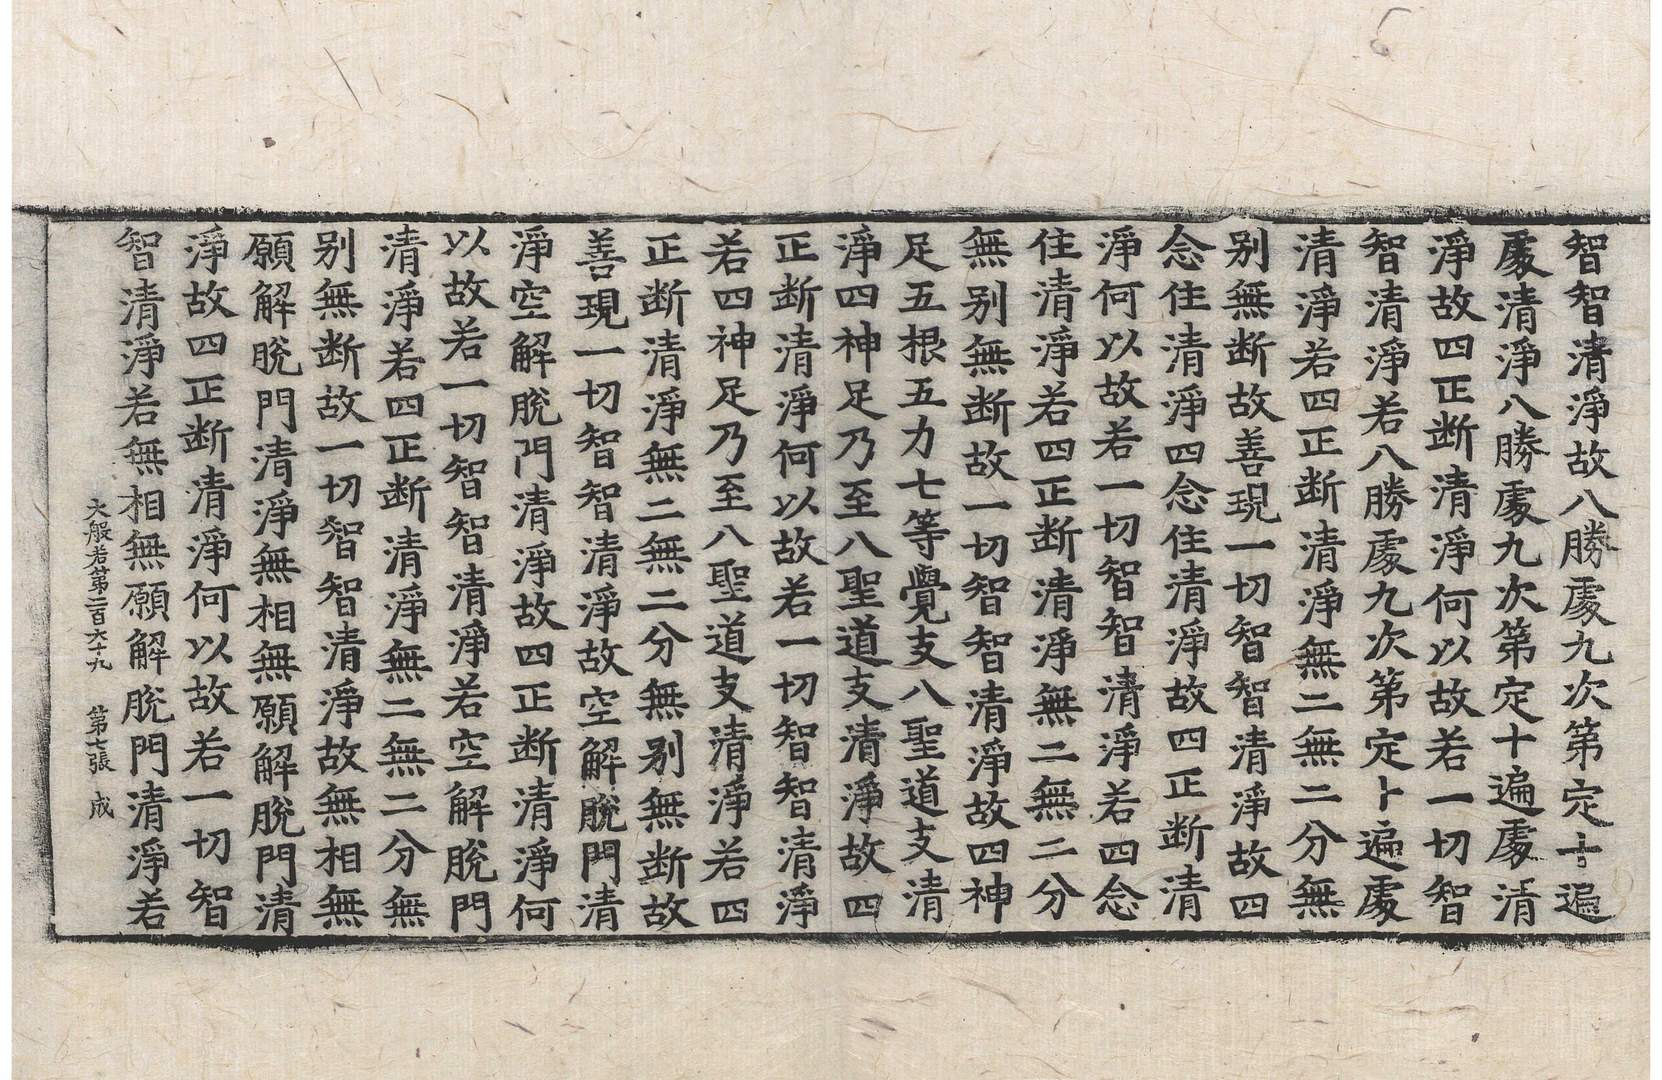 智智清淨故八勝處九次第定十遍
處清淨八勝處九次第定十遍處清
淨故四正断清淨何以故若一切智
智清淨若八勝處九次第定十遍處
清淨若四正断清淨無二無二分無
别無断故善現一切智智清淨故四
念住清淨四念住清淨故四正断清
淨何以故若一切智智清淨若四念
住清淨若四正断清淨無二無二分
無别無断故一切智智清淨故四神
足五根五力七等覺支八聖道支清
淨四神足乃至八聖道支清淨故四
正断清淨何以故若一切智智清淨
若四神足乃至八聖道支清淨若四
正断清淨無二無二分無别無断故
善現一切智智清淨故空解脫門清
淨空解脫門清淨故四正断清淨何
以故若一切智智清淨若空解脫門
清淨若四正断清淨無二無二分無
别無断故一切智智清淨故無相無
願解脫門清淨無相無願解脫門清
淨故四正断清淨何以故若一切智
智清淨若無相無願解脫門清淨若
大般若第二百六十九 第七張 成